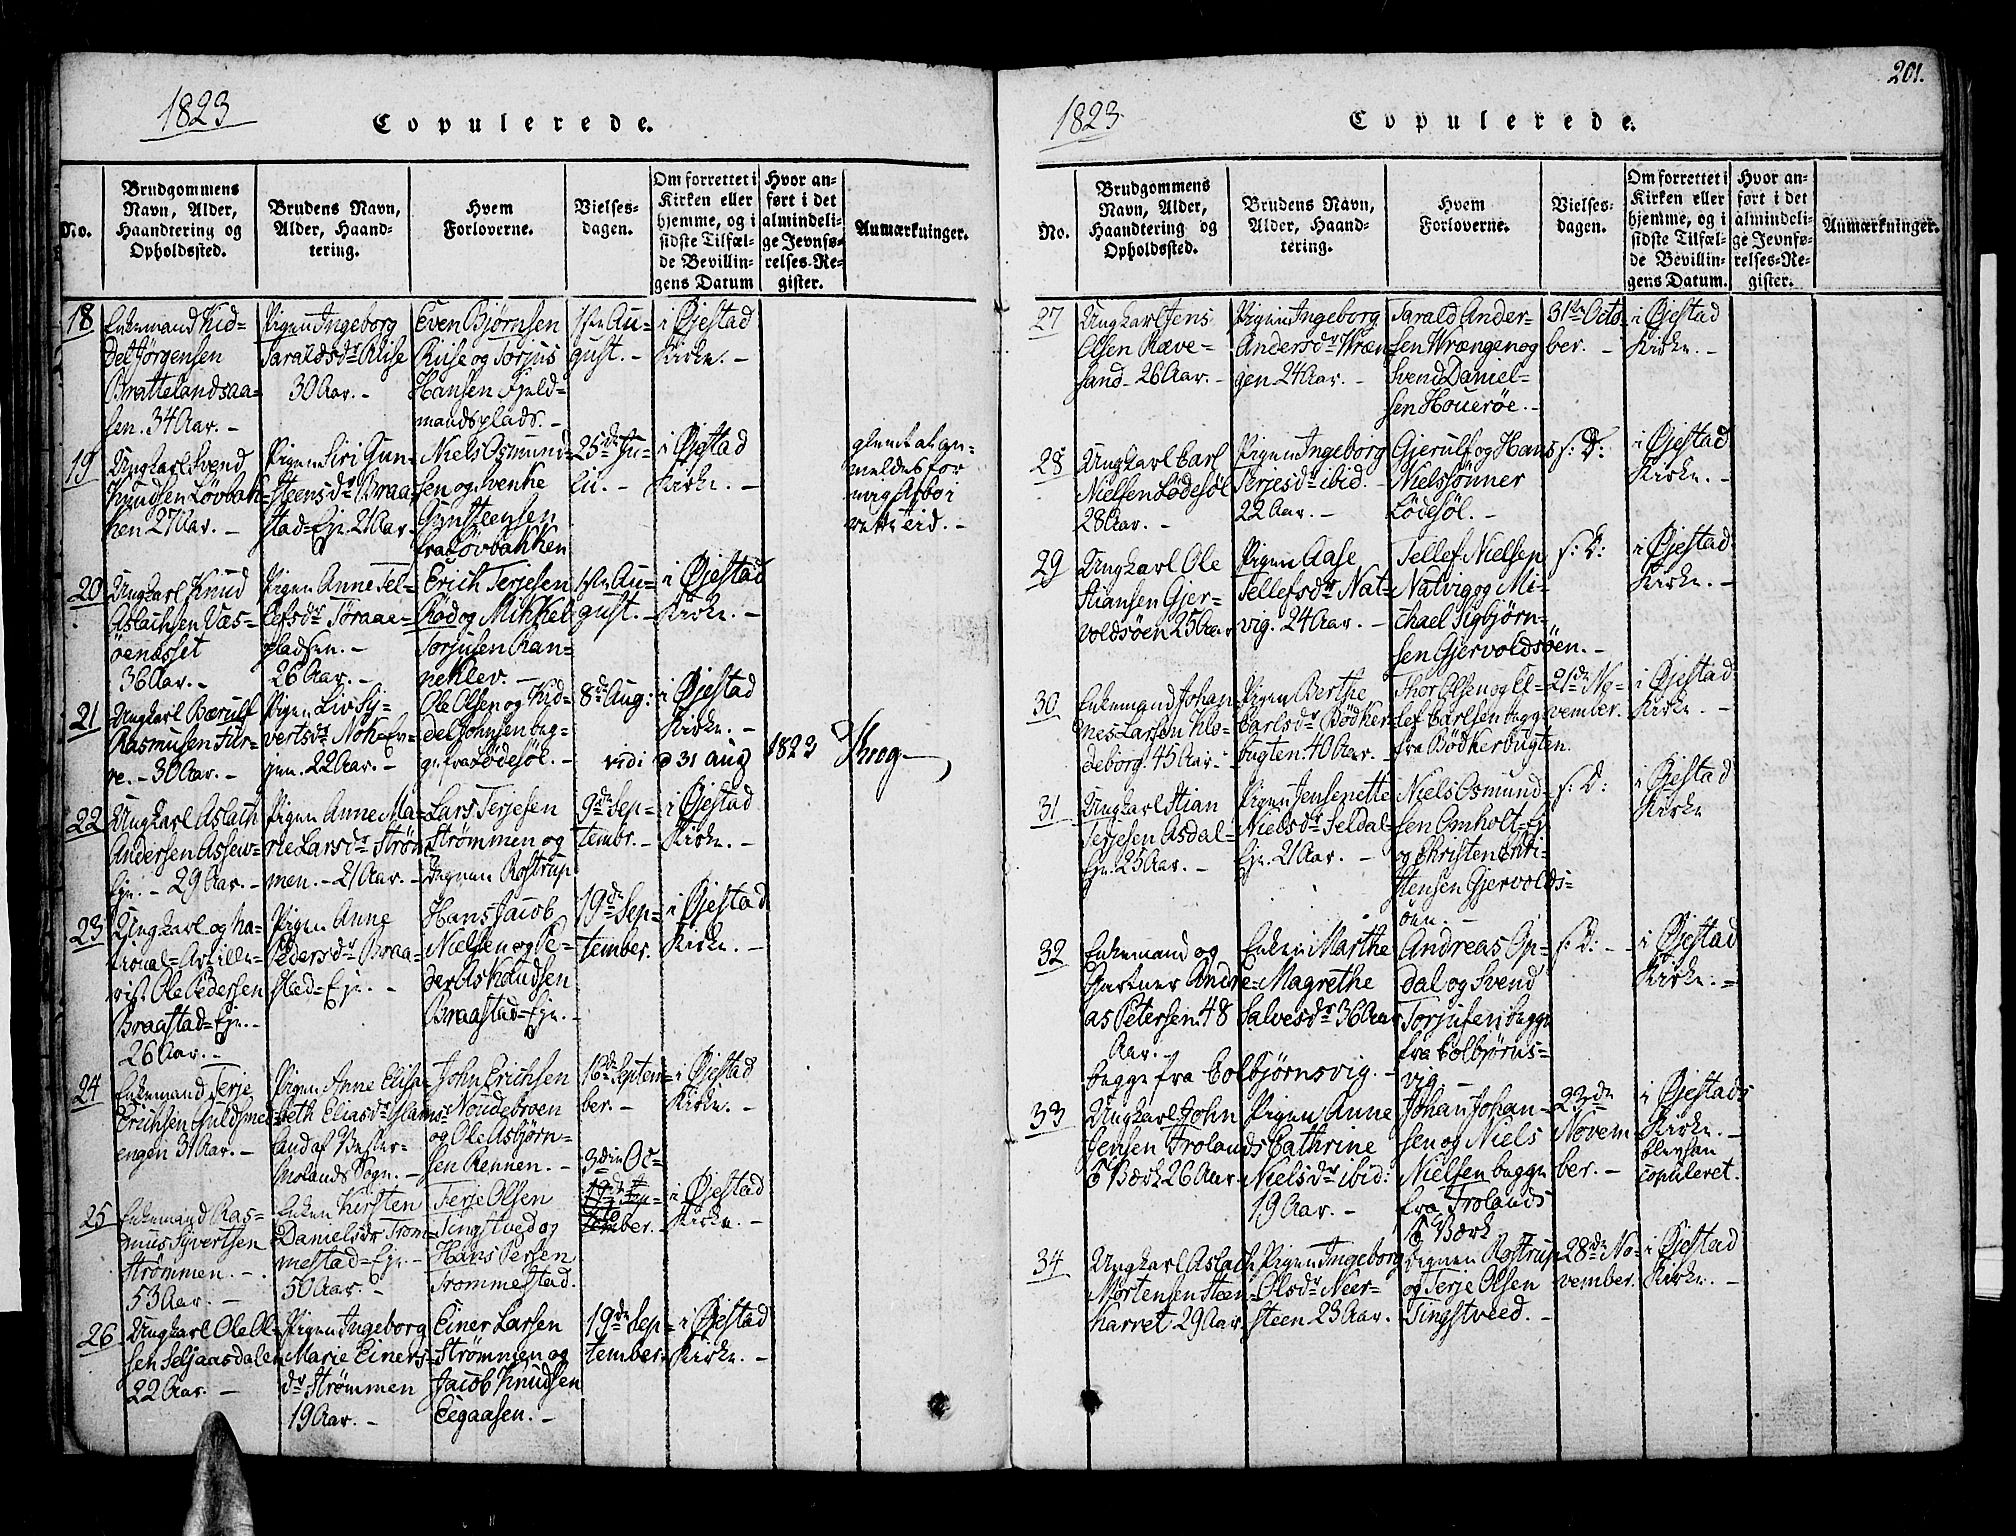 201.
1823
Copulerede.
No.
Brudgommens
Navn, Alder,
Haandtering og
Opholdssted.
Brudens Navn,
Alder, Haand-
tering.
Hvem
Forloverne.
Vielses-
dagen.
Om forrettet i
Kirken eller
hjemme, og i
sidste Tilfæl-
de Bevillin-
gens Datum
Hvor an-
ført i det
almindeli-
ge Jevnfø-
relses-Re-
gister.
Anmærkninger.
18
Enkemand Kid-
del Jörgensen
Brattelandsaa-
sen. 34 Aar. -
Pigen Ingeborg
Taraldsdr Riise
30 Aar. -
Even Bjørnsen
Riise og Torjus
Hansen Fjeld-
mandsplads. -
1ste Au-
gust. -
i Øjestad
Kirke. -
19
Ungkarl Svend
Knudsen Løvbak-
ken 27 Aar. -
Pigen Siri Gun-
steensdr Braa-
stad-Eje. 21 Aar -
Niels Osmund-
sen og Svenke
Gunsteensen
fra Løvbakken
25de Ju-
lii. -
i Øjestad
Kirke. -
glemt at an-
meldes for
mig Asbo i
rette tid. -
20
Ungkarl Knud
Aslachsen Væs-
öenæsset
36 Aar. -
Pigen Anne Tel-
lefsdr Toraae-
pladsen. -
26 Aar. -
Erich Terjesen
Röd og Mikkel
Torjusen Ran-
neklev. -
1ste Au-
gust. -
i Øjestad
Kirke. -
21
Ungkarl Bærulf
Rasmusen Fur-
re. - 30 Aar. -
Pigen Liv Sy-
vertsdr Nok-Ev-
jen. 22 Aar. -
Ole Olsen og Kid-
del Johnsen beg-
ge fra Lødesöl. -
8de Aug:
i Øjestad
Kirke. -
vidi d 31 Aug 1823 Krog
22
Ungkarl Aslach
Andersen Assew-
Eje. - 29 Aar. -
Pigen Anne Ma-
rie Larsdr Ström-
men. - 21 Aar. -
Lars Terjesen
Strømmen og
Degnen Rostrup
9de Sep-
tembr. -
i Øjestad
Kirke. -
23
Ungkarl og Na-
tional-Artille-
rist Ole Pedersen
Braastad-Eje. -
26 Aar. -
Pigen Anne
Pedersdr Braa-
stad-Eje. -
Hans Jacob
Nielsen og Pe-
der Aslaudsen
Braastad-Eje. -
19de Sep-
tember.
i Øjestad
Kirke. -
24
Enkemand Terje
Erichsen Guldsmed-
engen 31 Aar. -
Pigen Anne Elisa-
beth Eliasdr
Land af Vester-
Molands Sogn. -
John Erichsen
Noudebroen
og Ole Asbjørn-
sen Rennen. -
16de Septem-
ber. -
i Øjestad
Kirke. -
25
Enkemand Ras-
mus Syvertsen
Strømmen. -
53 Aar. -
Enken Kirsten
Danielsdr Trom-
mestad-Eje -
50 Aar. -
Terje Olsen
Tingstved og
Hans Persen
Trommestad.
3die Oc-
to
ber. -
i Øjestad
Kirke. -
26
Ungkarl Ole Ol-
sen Seljaasdalen
22 Aar. -
Pigen Ingeborg
Marie Einers-
dr Strømmen
19 Aar. -
Einer Larsen
Strømmen og
Jacob Knudsen
Eegaasen. -
19de Sep-
tember.
i Øjestad
Kirke. -
1823
Copulerede.
No.
Brudgommens
Navn, Alder,
Haandtering og
Opholdssted.
Brudens Navn,
Alder, Haand-
tering.
Hvem
Forloverne.
Vielses-
dagen.
Om forrettet i
Kirken eller
hjemme, og i
sidste Tilfæl-
de Bevillin-
gens Datum.
Hvor an-
ført i det
almindeli-
ge Jevnfø-
relses-Re-
gister.
Anmærkninger.
27
Ungkarl Jens
Olsen Ræve-
sand - 26 Aar. -
Pigen Ingeborg
Andersdr Wræn-
gen 24 Aar. -
Tarald Ander-
sen Wrængen og
Svend Daniel-
sen Houeröe. -
31te Octo-
ber. -
i Øjestad
Kirke. -
28
Ungkarl Carl
Nielsen Lödesöl
28 Aar. -
Pigen Ingeborg
Terjesdr ibid. -
22 Aar. -
Gjerulf og Hans
Nielssönner
Lödesöl. -
s: D:
i Øjestad
Kirke. -
29
Ungkarl Ole
Stiansen Gjer-
voldsöen 25 Aar
Pigen Aase
Tellefsdr Nat-
vig. 24 Aar. -
Tellef Nielsen
Natvig og Mi-
chael Sigbjörn-
sen Gjervoldsöen. -
s: D:
i Øjestad
Kirke. -
30
Enkemand Johan-
nes Larsen Klo-
deborg. 45 Aar -
Pigen Berthe
Carlsdr Bödker-
bugten. 40 Aar. -
Thor Olsen og El-
lef Carlsen begge
fra Bödkerbugten.
21de No-
vember.
i Øjestad
Kirke. -
31
Ungkarl Stian
Terjesen Asdal-
Eje. 25 Aar. -
Pigen Jensenette
Nielsdr Seldal-
Eje. 21 Aar. -
Niels Osmund-
sen Omholt-Ej
og Christen Chri-
stensen Gjervolds-
öen. -
s: D:
i Øjestad
Kirke
32
Enkemand og
Gartner Andre-
as Petersen. 48
Aar. -
Enken Marthe
Magrethe
Salvesdr 36 Aar
begge fra Colbjørnsvig. -
Andreas Op-
dal og Svend
Torjusen begge
fra Colbjørns-
vig -
s: D: -
i Øjestad
Kirke. -
33
Ungkarl John
Jensen Frolands
Værk 26 Aar
Pigen Anne
Cathrine
Nielsdr ibid:
19 Aar. -
Johan Johan-
sen og Niels
Nielsen begge
fra Frolands
Værk
23de
Novem-
ber. -
i Øjestads
Kirke. -
blev han
copuleret.
34
Ungkarl Aslach
Mortensen Steen-
Karret 29 Aar
Pigen Ingeborg
Olsdr Neer-
steen 23 Aar. -
Degnen Rostrup
og Terje Olsen
Tingstveed. -
28de No-
vember.
i Øjestad
Kirke. -